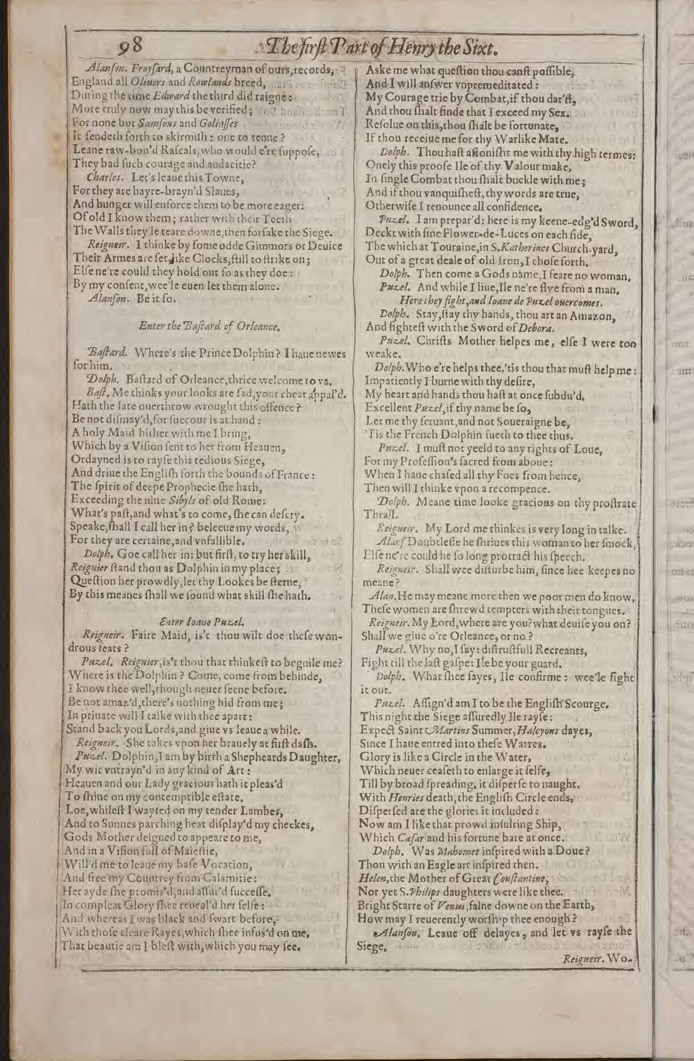 98
The first Part of Henry the Sixt.
Alanson. Froysard, a Countreyman of ours, records,
England all Oliuers and Rowlands breed,
During the time Edward the third did raigne:
More truly now may this be verified;
For none but Samsons and Goliasses
It sendeth forth to skirmish: one to tenne?
Leane raw-bon'd Rascals, who would e're suppose,
They had such courage and audacitie?
Charles. Let's leaue this Towne,
For they are hayre-brayn'd Slaues,
And hunger will enforce them to be more eager:
Of old I know them; rather with their Teeth
The Walls they'le teare downe, then forsake the Siege.
Reigneir. I thinke by some odde Gimmors or Deuice
Their Armes are set, like Clocks, still to strike on;
Else ne're could they hold out so as they doe:
By my consent, wee'le euen let them alone.
Alanson. Be it so.
Enter the Bastard of Orleance.
Bastard. Where's the Prince Dolphin? I haue newes
for him.
Dolph. Bastard of Orleance, thrice welcome to vs.
Bast. Me thinks your looks are sad, your chear appal'd.
Hath the late ouerthrow wrought this offence?
Be not dismay'd, for succour is at hand:
A holy Maid hither with me I bring,
Which by a Vision sent to her from Heauen,
Ordayned is to rayse this tedious Siege,
And driue the English forth the bounds of France:
The spirit of deepe Prophecie she hath,
Exceeding the nine Sibyls of old Rome:
What's past, and what's to come, she can descry.
Speake, shall I call her in? beleeue my words,
For they are certaine, and vnfallible.
Dolph. Goe call her in: but first, to try her skill,
Reignier stand thou as Dolphin in my place;
Question her prowdly, let thy Lookes be sterne,
By this meanes shall we sound what skill she hath.
Enter Ioane Puzel.
Reigneir. Faire Maid, is't thou wilt doe these won-
drous feats?
Puzel. Reignier, is't thou that thinkest to beguile me?
Where is the Dolphin? Come, come from behinde,
I know thee well, though neuer seene before.
Be not amaz'd, there's nothing hid from me;
In priuate will I talke with thee apart:
Stand back you Lords, and giue vs leaue a while.
Reigneir. She takes vpon her brauely at first dash.
Puzel. Dolphin, I am by birth a Shepheards Daughter,
My wit vntrayn'd in any kind of Art:
Heauen and our Lady gracious hath it pleas'd
To shine on my contemptible estate.
Loe, whilest I wayted on my tender Lambes,
And to Sunnes parching heat display'd my cheekes,
Gods Mother deigned to appeare to me,
And in a Vision full of Maiestie,
Will'd me to leaue my base Vocation,
And free my Countrey from Calamitie:
Her ayde she promis'd, and assur'd successe.
In compleat Glory shee reueal'd her selfe:
And whereas I was black and swart before,
With those cleare Rayes, which shee infus'd on me,
That beautie am I blest with, which you may see.
Aske me what question thou canst possible,
And I will answer vnpremeditated:
My Courage trie by Combat, if thou dar'st,
And thou shalt finde that I exceed my Sex.
Resolue on this, thou shalt be fortunate,
If thou receiue me for thy Warlike Mate.
Dolph. Thou hast astonisht me with thy high termes:
Onely this proofe Ile of thy Valour make,
In single Combat thou shalt buckle with me;
And if thou vanquishest, thy words are true,
Otherwise I renounce all confidence.
Puzel. I am prepar'd: here is my keene-edg'd Sword,
Deckt with fine Flower-de-Luces on each side,
The which at Touraine, in S. Katherines Church-yard,
Out of a great deale of old Iron, I chose forth.
Dolph. Then come a Gods name, I feare no woman.
Puzel. And while I liue, Ile ne're flye from a man.
Here they fight, and Ioane de Puzel ouercomes.
Dolph. Stay, stay thy hands, thou art an Amazon,
And fightest with the Sword of Debora.
Puzel. Christs Mother helpes me, else I were too
weake.
Dolph. Who e're helps thee, 'tis thou that must help me:
Impatiently I burne with thy desire,
My heart and hands thou hast at once subdu'd.
Excellent Puzel, if thy name be so,
Let me thy seruant, and not Soueraigne be,
'Tis the French Dolphin sueth to thee thus.
Puzel. I must not yeeld to any rights of Loue,
For my Profession's sacred from aboue:
When I haue chased all thy Foes from hence,
Then will I thinke vpon a recompence.
Dolph. Meane time looke gracious on thy prostrate
Thrall.
Reigneir. My Lord me thinkes is very long in talke.
Alans. Doubtlesse he shriues this woman to her smock,
Else ne're could he so long protract his speech.
Reigneir. Shall wee disturbe him, since hee keepes no
meane?
Alan. He may meane more then we poor men do know,
These women are shrewd tempters with their tongues.
Reigneir. My Lord, where are you? what deuise you on?
Shall we giue o're Orleance, or no?
Puzel. Why no, I say: distrustfull Recreants,
Fight till the last gaspe: Ile be your guard.
Dolph. What shee sayes, Ile confirme: wee'le fight
it out.
Puzel. Assign'd am I to be the English Scourge.
This night the Siege assuredly Ile rayse:
Expect Saint Martins Summer, Halcyons dayes,
Since I haue entred into these Warres.
Glory is like a Circle in the Water,
Which neuer ceaseth to enlarge it selfe,
Till by broad spreading, it disperse to naught.
With Henries death, the English Circle ends,
Dispersed are the glories it included:
Now am I like that prowd insulting Ship,
Which Cæsar and his fortune bare at once.
Dolph. Was Mahomet inspired with a Doue?
Thou with an Eagle art inspired then.
Helen, the Mother of Great Constantine,
Nor yet S. Philips daughters were like thee.
Bright Starre of Venus, falne downe on the Earth,
How may I reuerently worship thee enough?
Alanson. Leaue off delayes, and let vs rayse the
Siege.
Reigneir. Wo-